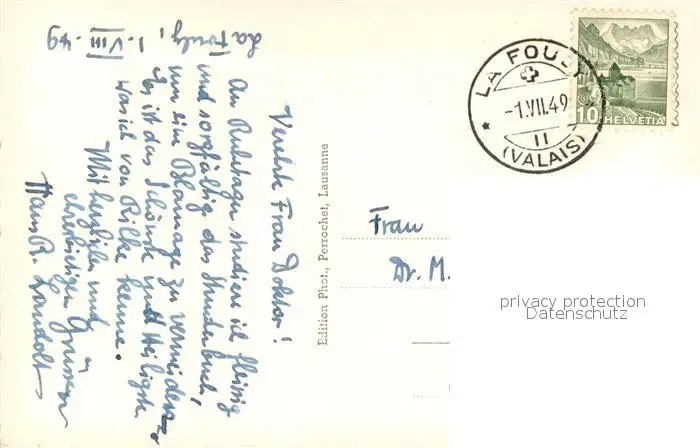 La Fouly, 1. VIII. 49
Verehrte Frau Doktor!
An Ruhetagen studiere ich fleissig
und sorgfältig das Stundenbuch,
um eine Blamage zu vermeiden.
Es ist das Schönste und Heiligste
was ich von Rilke kenne.
Mit herzlichen und
ehrerbietigen Grüssen
Hans R. Landolt
Edition Phot., Perrochet, Lausanne
LA FOULY
-1.VIII.49
11
(VALAIS)
10 HELVETIA
Frau
Dr. M.
privacy protection
Datenschutz